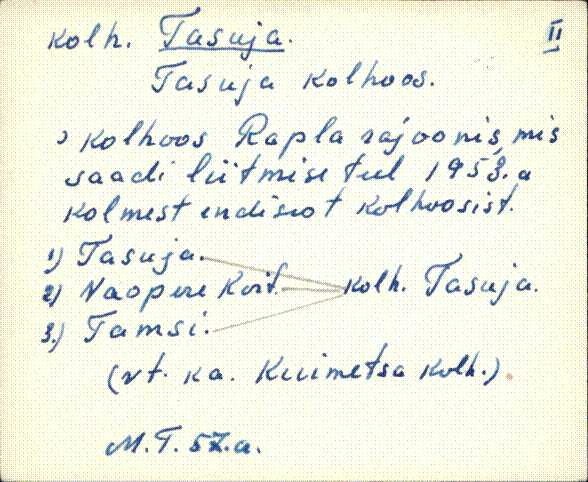 kolh. Tasuja. II
Tasuja kolhoos.
) kolhoos Rapla rajoonis, mis
saadi liitmise teel 195 a
kolmest endisest kolhoosist.
1) Tasuja.
2) Naapere Koit. kolh. Tasuja.
3.) Tamsi.
(vt. ka. Kuimetsa kolh.)
M.T. 57.a.